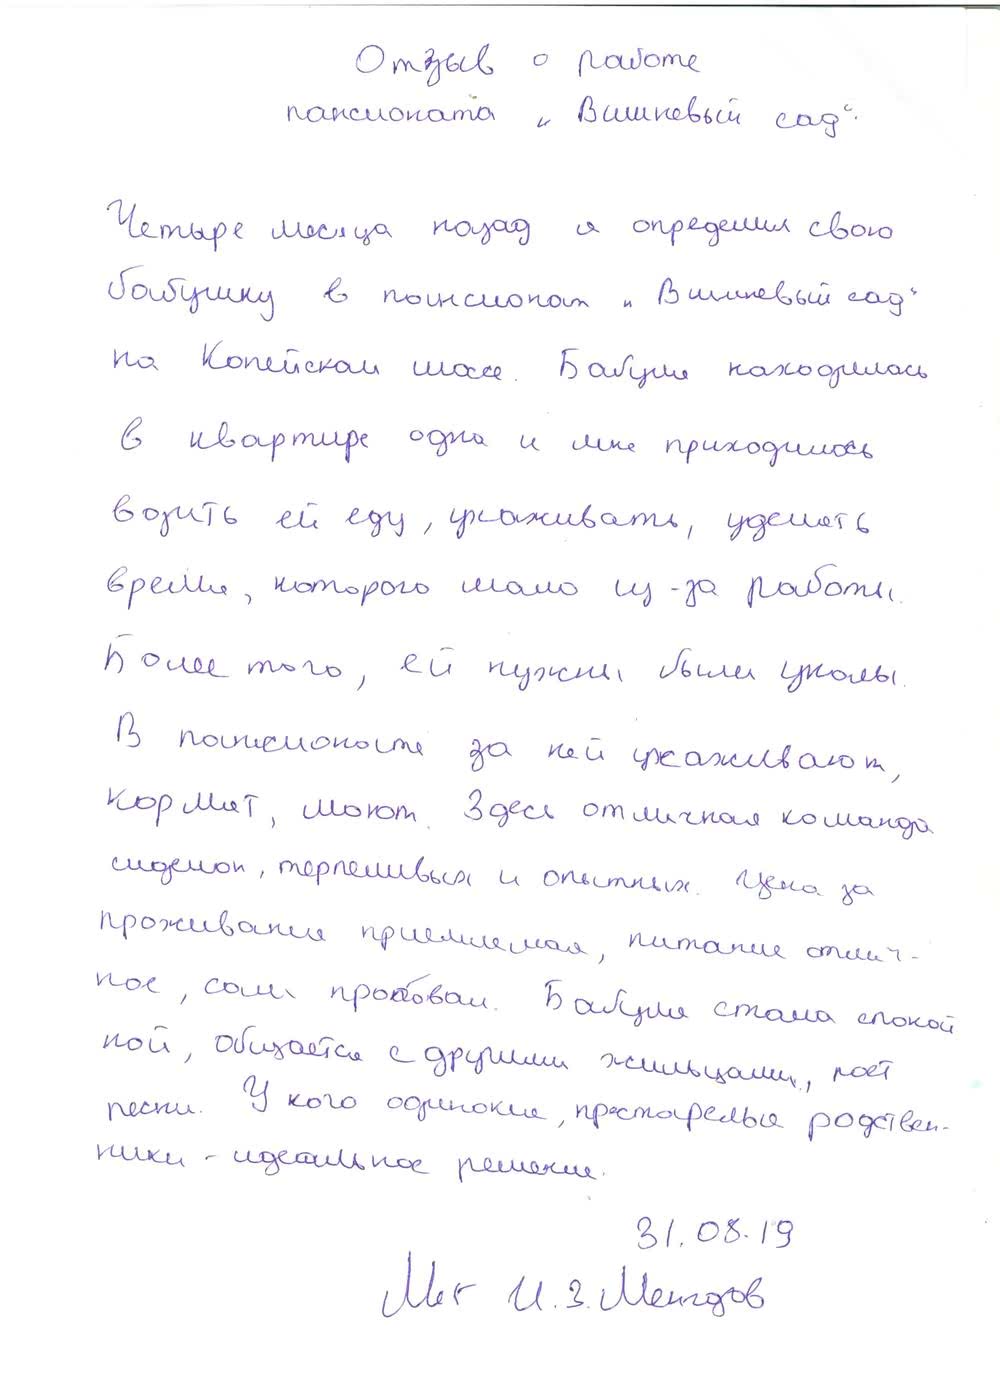 Отзыв о работе
пансионата "Вишневый сад".
Четыре месяца назад я определил свою
бабушку в пансионат "Вишневый сад"
на Копейском шоссе. Бабуля находилась
в квартире одна и мне приходилось
возить ей еду, ухаживать, уделять
время, которого мало из-за работы.
Более того, ей нужны были уколы.
В пансионате за ней ухаживают,
кормят, моют. Здесь отличная команда
сиделок, терпеливых и опытных. Цена за
проживание приемлемая, питание отлич-
ное, сам пробовал. Бабуля стала спокой
ной, общается с другими жильцами, поет
песни. У кого одинокие, престарелые родствен-
ники - идеальное решение.
31.08.19
И.З.